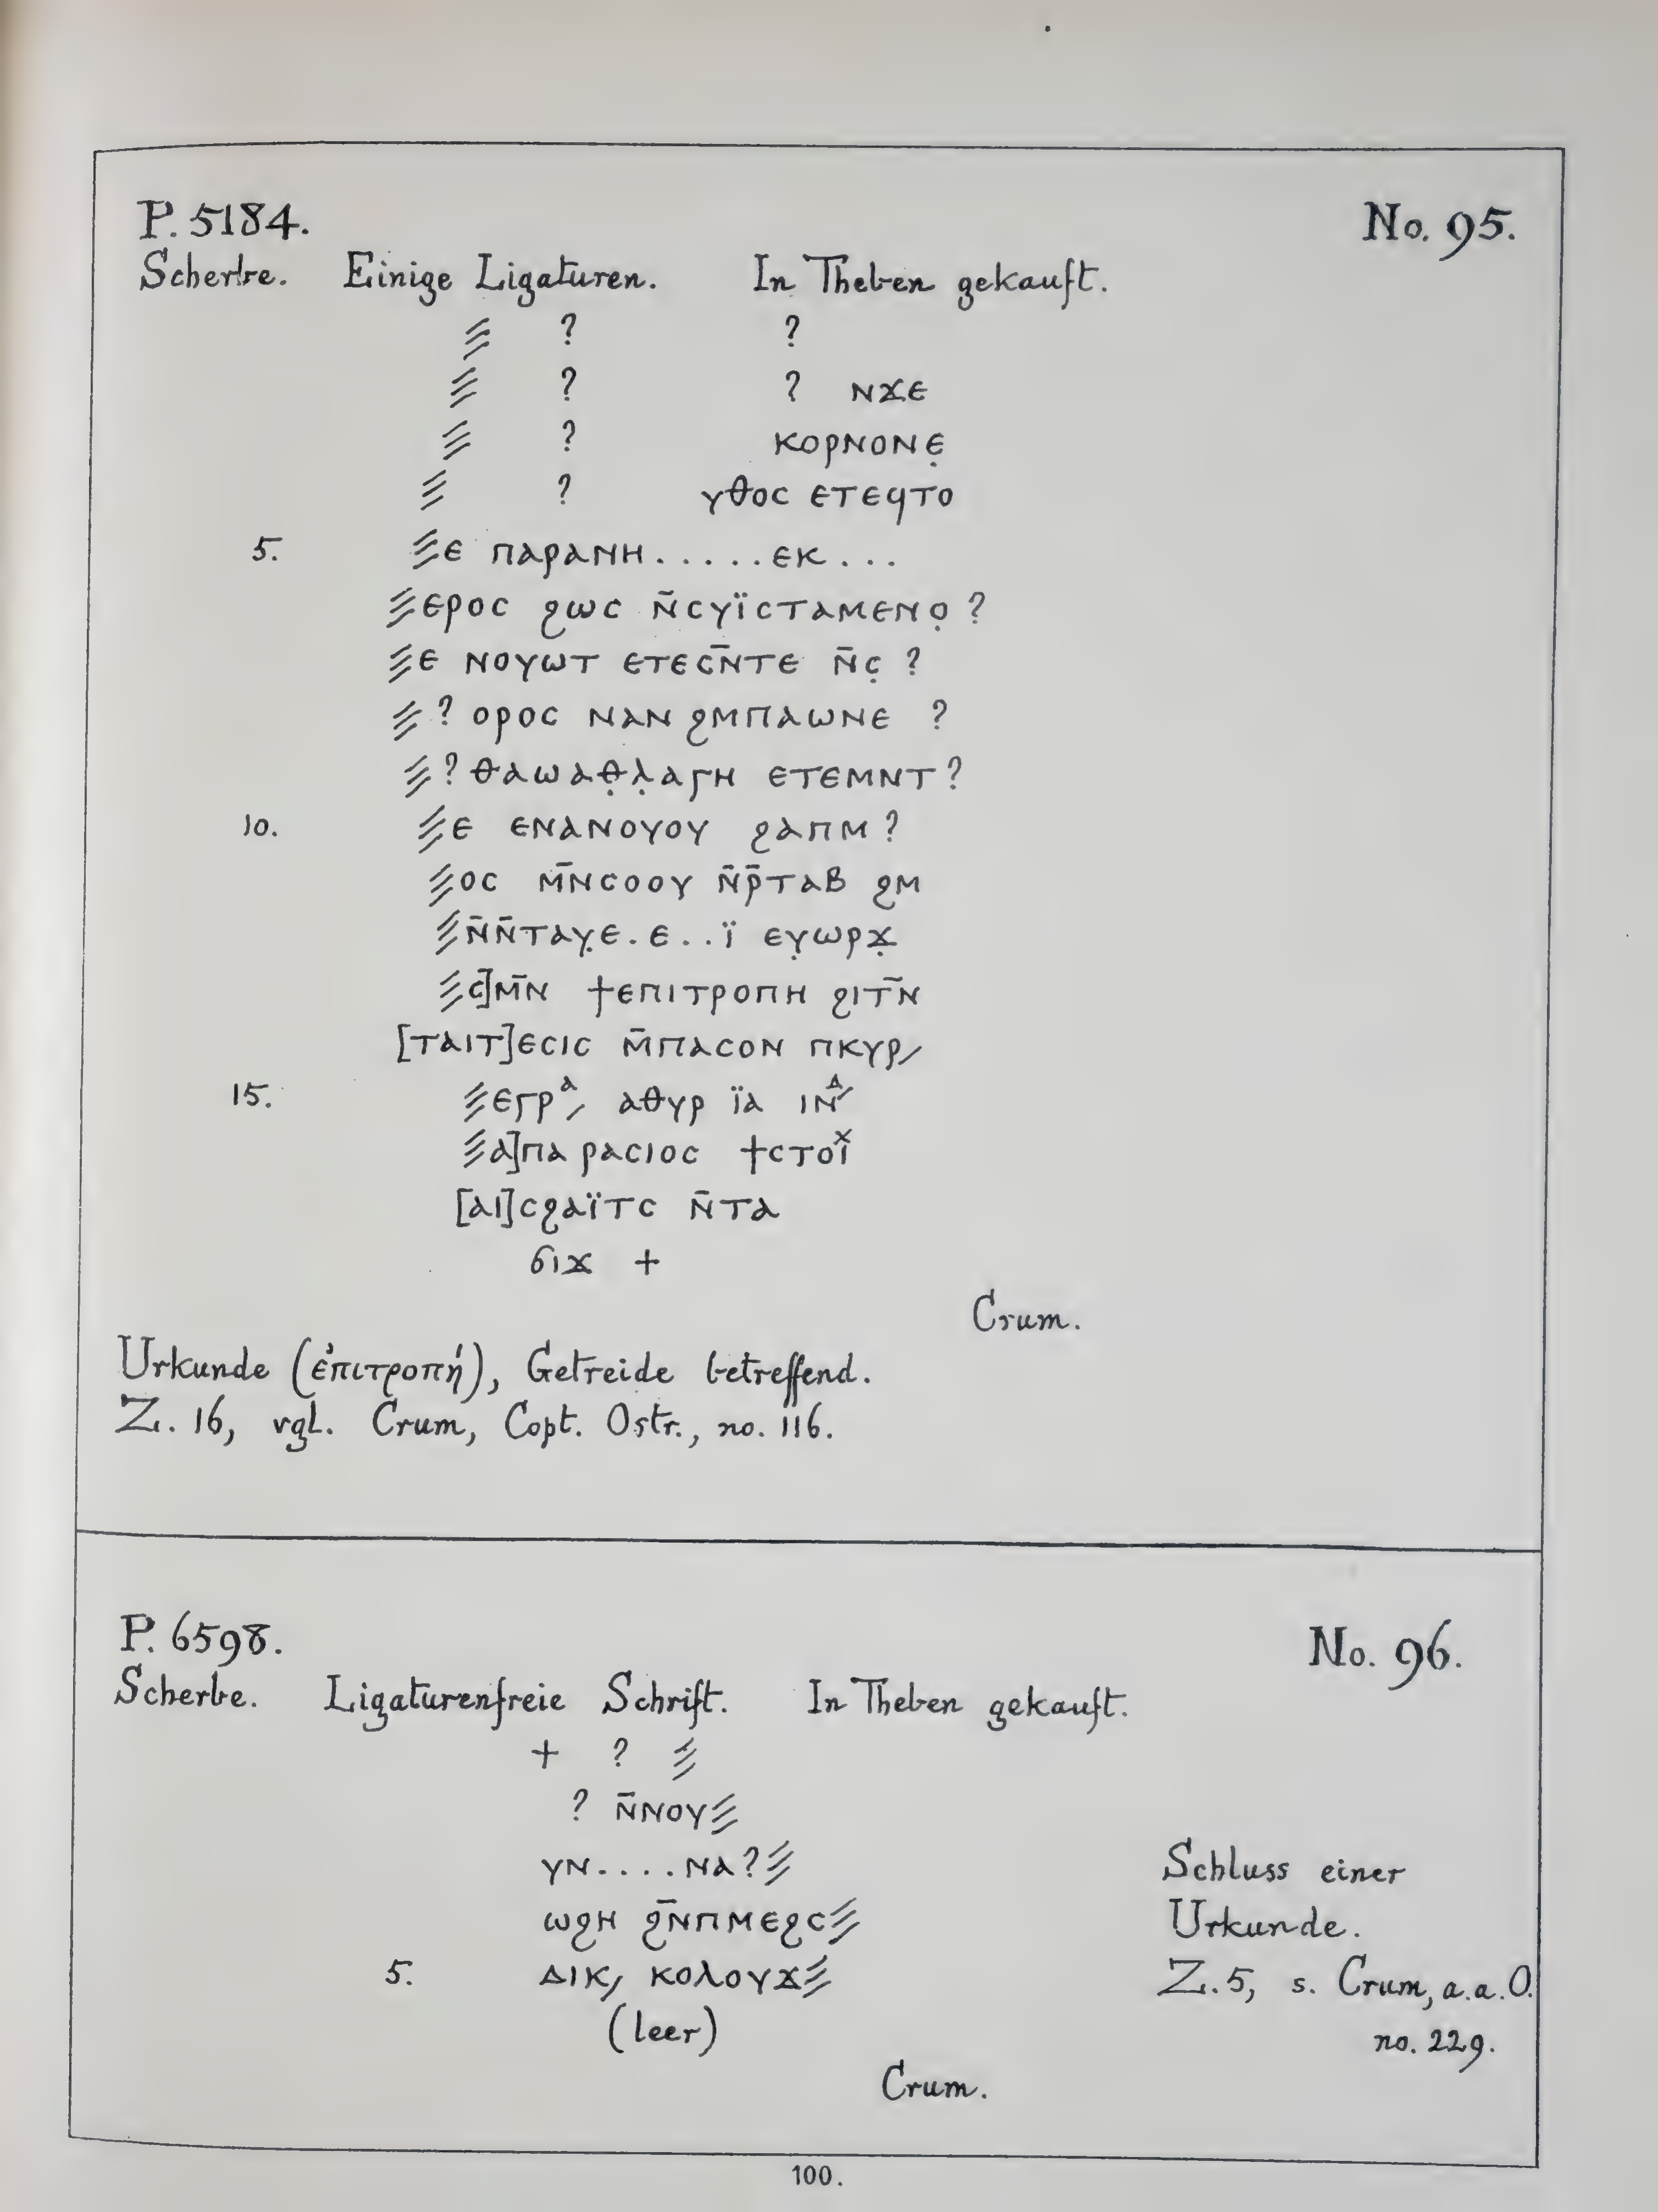 P. 5184. No. 95.
Scherbe. Einige Ligaturen. In Theben gekauft.
⳿ ? ?
? ? ⲛϫⲉ
? ⲕⲟⲣⲛⲟⲛⲉ̣
? ⲩⲑⲟⲥ ⲉⲧⲉϥⲧⲟ
5. ⲉ ⲡⲁⲣⲁⲛⲏ.....ⲉⲕ...
ⲉⲣⲟⲥ ϩⲱⲥ ⲛ̄ⲥⲩⲓ̈ⲥⲧⲁⲙⲉⲛⲟ̣ ?
ⲉ ⲛⲟⲩⲱⲧ ⲉⲧⲉⲥⲛ̄ⲧⲉ ⲛ̄ⲥ̣ ?
? ⲟⲣⲟⲥ ⲛⲁⲛ ϩⲙⲡⲁⲱⲛⲉ ?
? ⲑⲁⲱⲁⲑ̣ⲗ̣ⲁⲅⲏ ⲉⲧⲉⲙⲛⲧ ?
10. ⲉ ⲉⲛⲁⲛⲟⲩⲟⲩ ϩⲁⲡⲙ ?
ⲟⲥ ⲙ̄ⲛⲥⲟⲟⲩ ⲛ̄ⲣ̄ⲧⲁⲃ ϩⲙ
ⲛ̄ⲛ̄ⲧⲁⲩ̣ⲉ.ⲉ..ⲓ̈ ⲉⲩ̣ⲱⲣϫ̣
ⲥ]ⲙ̄ⲛ ϯⲉⲡⲓⲧⲣⲟⲡⲏ ϩⲓⲧⲛ̄
[ⲧⲁⲓⲧ]ⲉⲥⲓⲥ ⲙ̄ⲡⲁⲥⲟⲛ ⲡⲕⲩⲣ/
15. ⲉⲅⲣᵃ/ ⲁⲑⲩⲣ ⲓ̈ⲁ ⲓⲛᐞ/
ⲁ]ⲡⲁ ⲣⲁⲥⲓⲟⲥ ϯⲥⲧⲟⲓˣ
[ⲁⲓ]ⲥϩⲁⲓ̈ⲧⲥ ⲛ̄ⲧⲁ
ϭⲓϫ +
Crum.
Urkunde (ἐπιτροπή), Getreide betreffend.
Z. 16, vgl. Crum, Copt. Ostr., no. 116.
P. 6598. No. 96.
Scherbe. Ligaturenfreie Schrift. In Theben gekauft.
+ ?
? ⲛ̄ⲛⲟⲩ
ⲩⲛ....ⲛⲁ?
ⲱϩⲏ ϩⲛ̄ⲡⲙⲉϩⲥ
5. ⲇⲓⲕ/ ⲕⲟⲗⲟⲩϫ
(leer)
Crum.
Schluss einer
Urkunde.
Z. 5, s. Crum, a.a.O.
no. 229.
100.